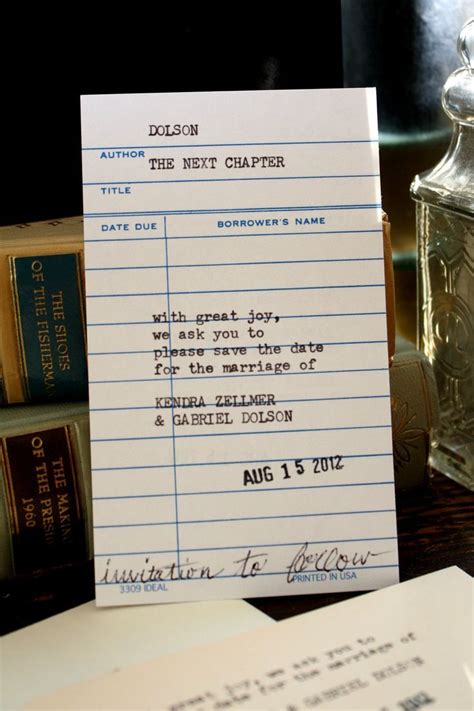 DOLSON
AUTHOR
THE NEXT CHAPTER
TITLE
DATE DUE BORROWER'S NAME
with great joy,
we ask you to
please save the date
for the marriage of
KENDRA ZELLMER
& GABRIEL DOLSON
AUG 15 2012
invitation to follow
3309 IDEAL PRINTED IN USA
THE SHOES
OF THE
FISHERMAN
THE MAKING
OF THE
1960
great joy, we ask you to
date for the marriage of
& GABRIEL DOLSON